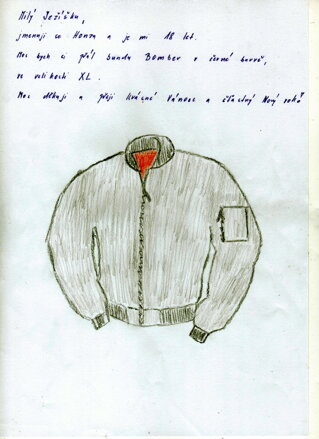 Milý Ježíšku,
jmenuji se Honza a je mi 18 let.
Moc bych si přál bundu Bomber v černé barvě,
ve velikosti XL.
Moc děkuji a přeji krásné Vánoce a šťastný Nový rok